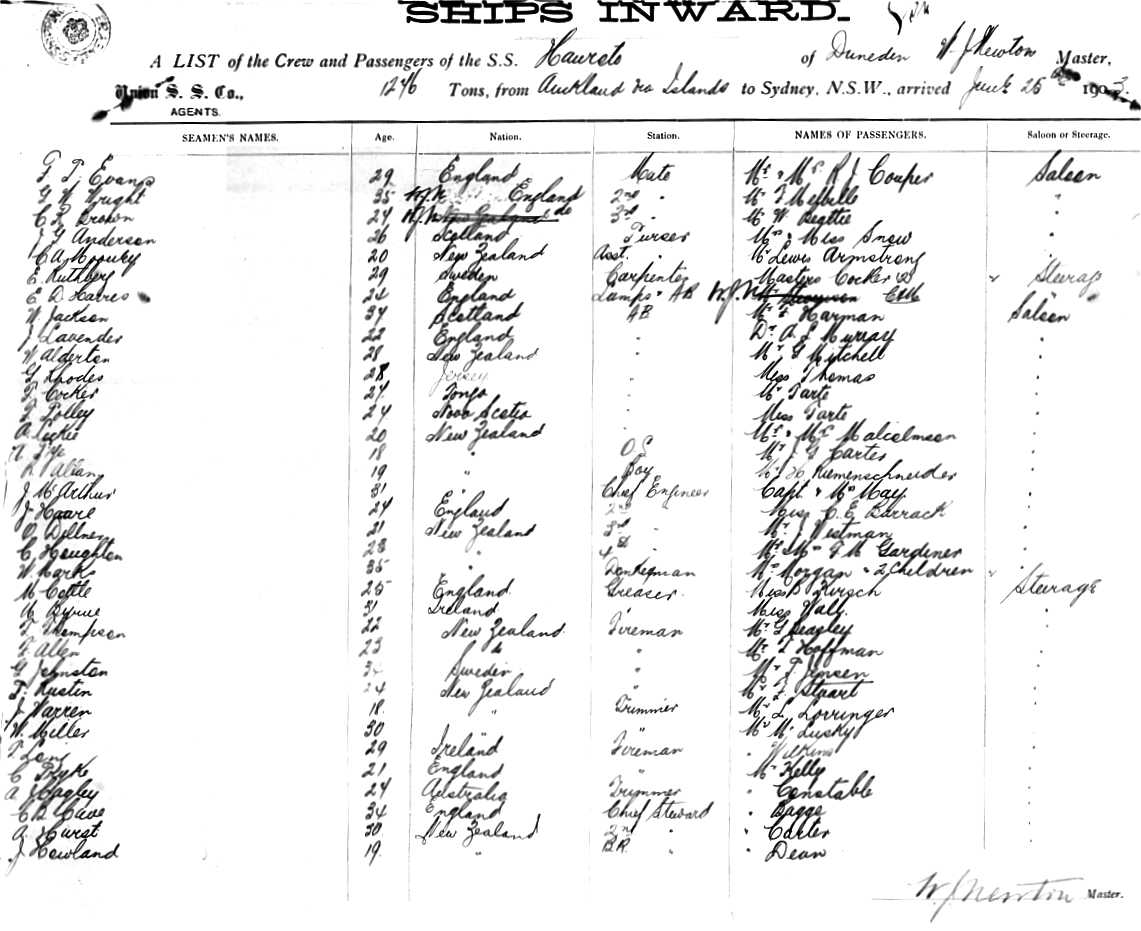 SHIPS INWARD.
A LIST of the Crew and Passengers of the S.S. Hauroto of Dunedin W J Newton Master,
Union S. S. Co., 1276 Tons, from Auckland via Islands to Sydney, N.S.W., arrived 25 1903.
AGENTS.
SEAMEN'S NAMES. Age. Nation. Station. NAMES OF PASSENGERS. Saloon or Steerage.
F. T. Evans 29 England Mate Mr & Mrs R J Couper Saloon
G W Wright 35 W.J.N England 2nd " Mr F "
C R Brown 24 W.J.N do 3rd " Mr W Beattie "
J G Anderson 26 Scotland Purser & Miss Snow "
C A 20 New Zealand Asst. " Mr Lewis Armstrong "
E. Ruthberg 29 Sweden Carpenter Masters Cocker D " Steerage
E D Harris 24 England Lamps & AB W.J.N E & M "
W. Jackson 34 Scotland AB Mr F Harman Saloon
J Lavender 22 England " Dr A L Murray "
W Alderton 28 New Zealand " Mr G Mitchell "
G Rhodes 28 Jersey " Miss Thomas "
F Cocker 24 Tonga " Mr Tarte "
F Polley 24 Nova Scotia " Miss Tarte "
A Leckie 20 New Zealand " Mr & Mrs Malcolmson "
18 " O.S Mr J G Carter "
19 " Boy Mr H Riemenschneider "
J McArthur 31 " Chief Engineer Capt & Mrs May "
J Hoare 24 England 2nd " Miss C. E Barrack "
O Dillner 21 New Zealand 3rd " Mr J Westman "
C Houghton 28 " 4th " Mr & Mrs F M Gardiner "
W Clark 35 " Donkeyman Mrs Morgan & 2 Children "
M Cottle 25 England Greaser Miss B Hirsch Steerage
M Byrne 31 Ireland " Miss Wall "
F Thompson 22 New Zealand Fireman Mr G Beagley "
F. Allen 23 do " Mr F Hoffman "
G Johnston Sweden " Mr F Jensen "
F. Rustin 24 New Zealand " Mr F. Stuart "
J Warren 18 " Trimmer Mr L Lovringer "
W. Miller 30 " " Mr M Lusky "
29 Ireland Fireman " Wilkins "
C Pyke 21 England " Mr Kelly "
A J Bagley 24 Australia Trimmer " Constable "
C B Cave 34 England Chief Steward " Bagge "
A Hurst 30 New Zealand 2nd " " Carter "
J Howland 19 " B.R. " " Dean "
W. J. Newton Master.